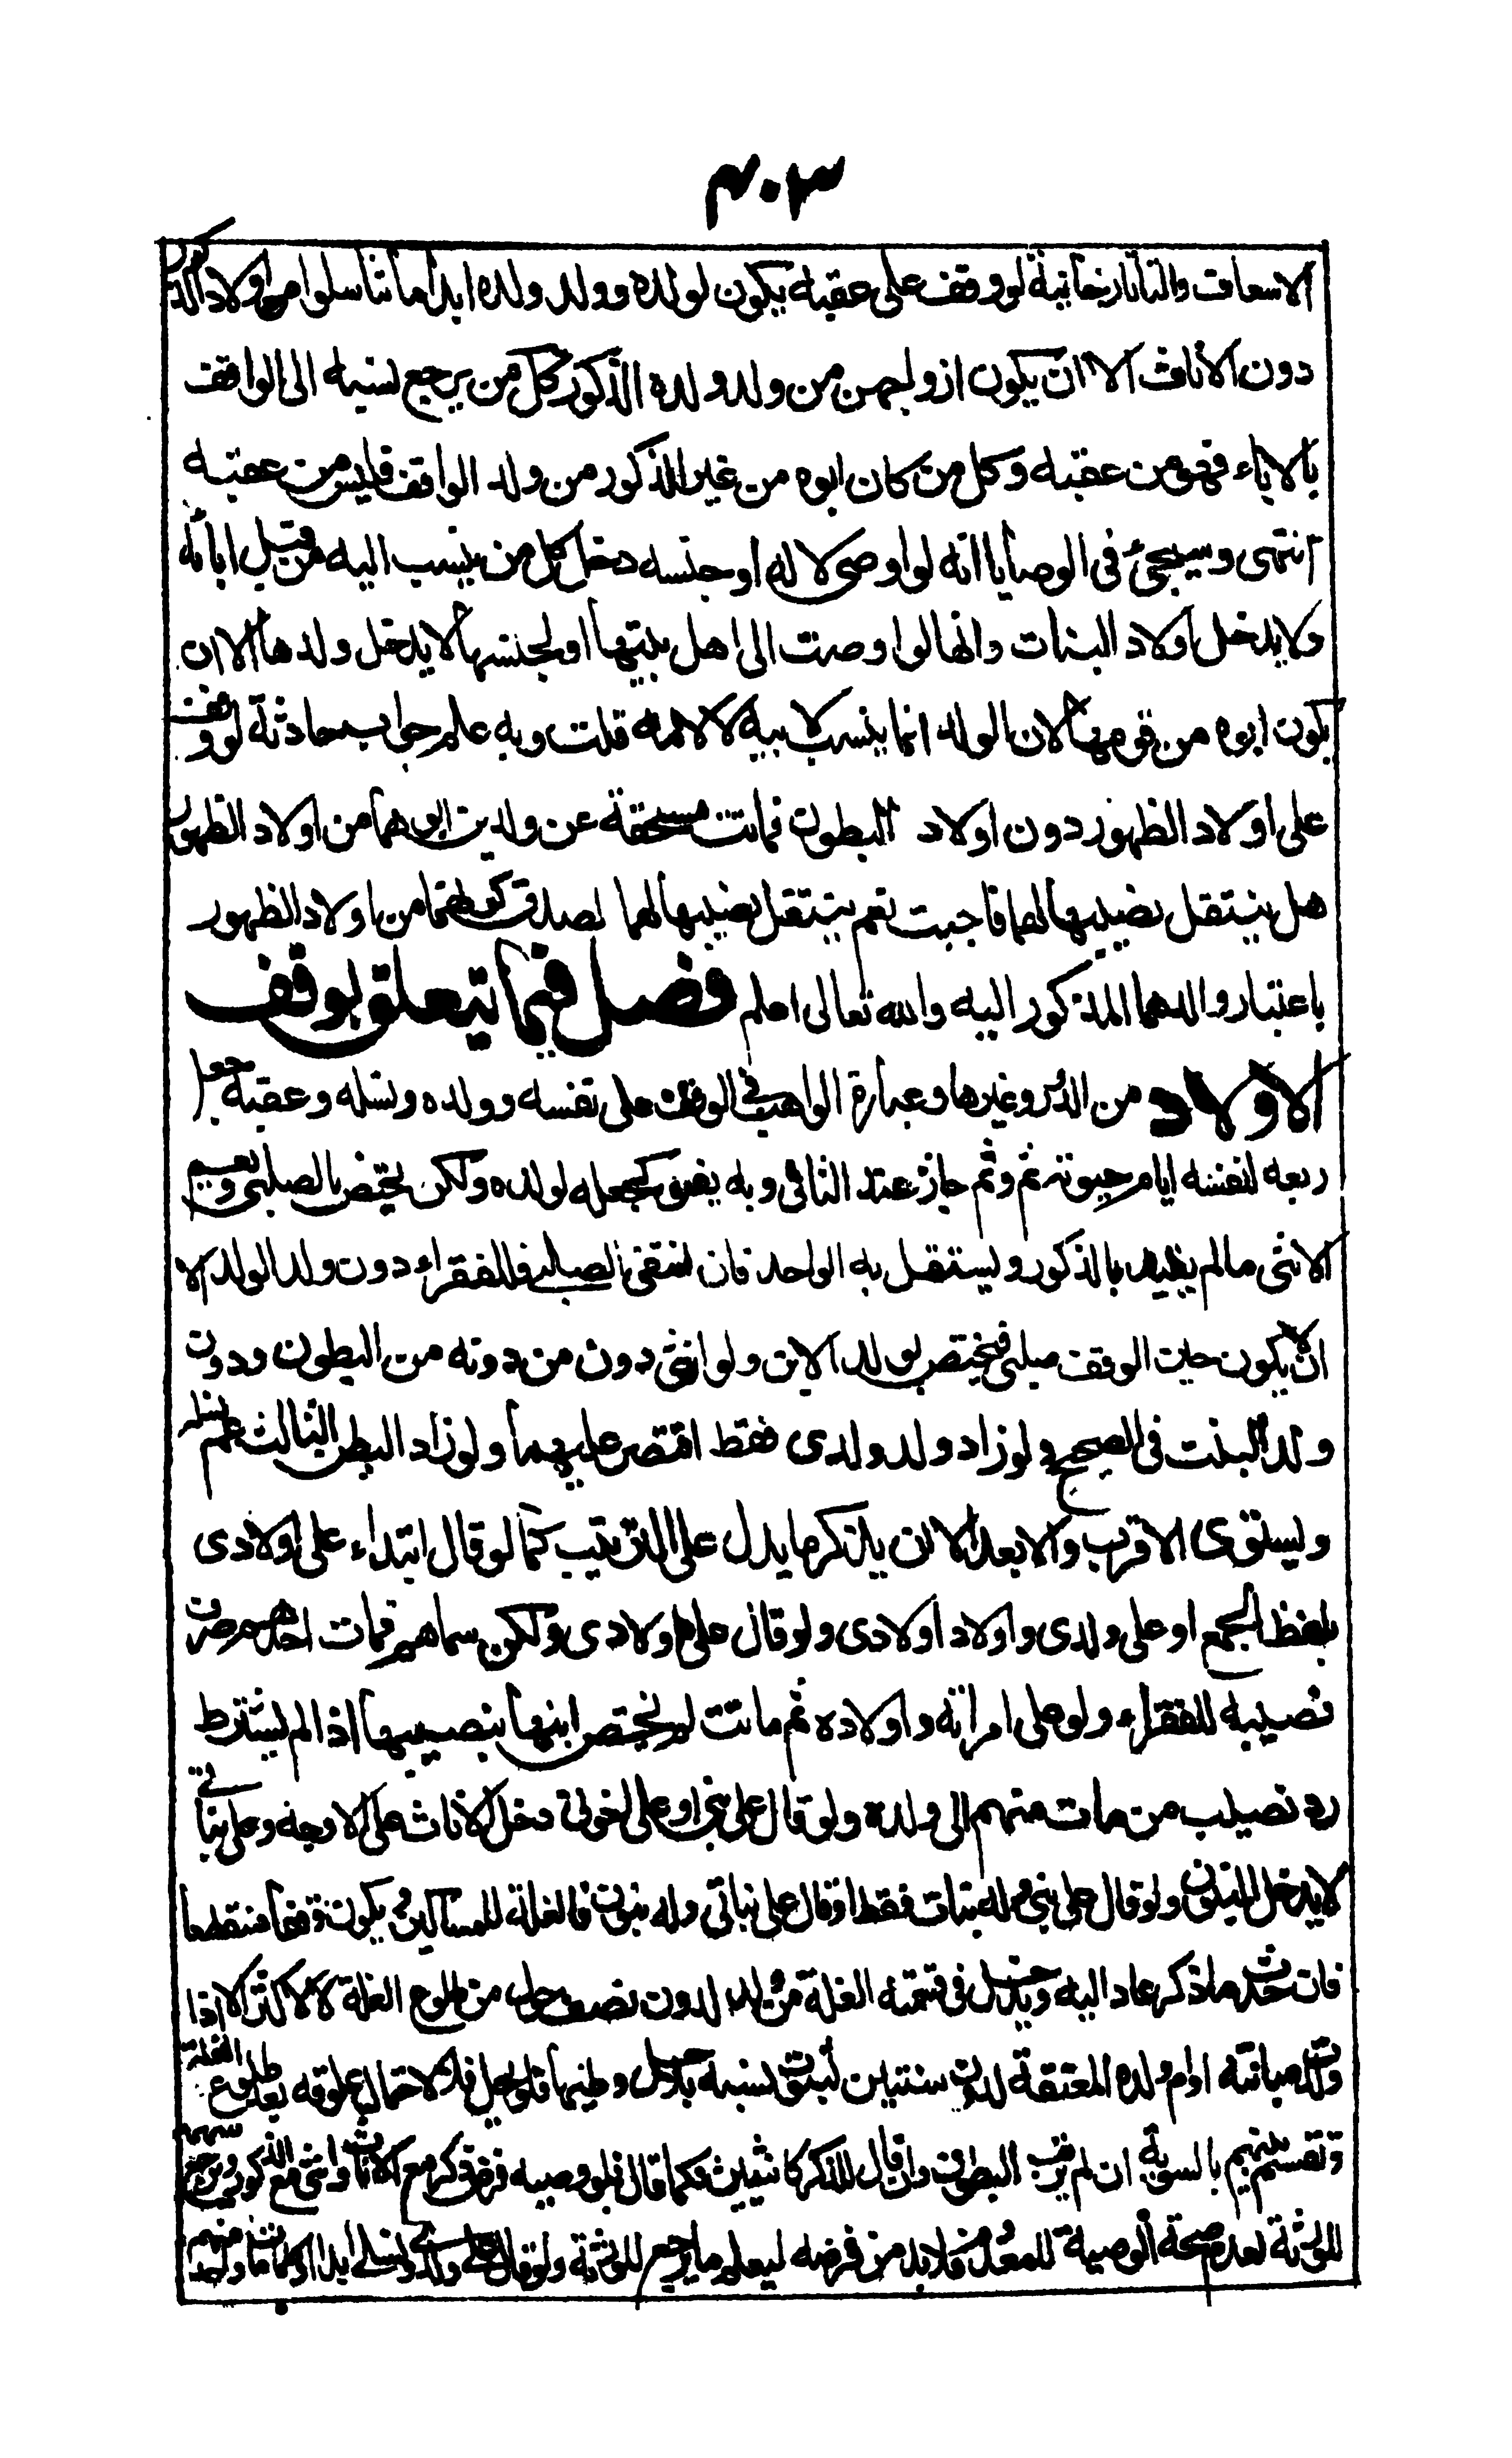 ٣٠٢
الاسعاف والتاتارخانية لو وقف على عقبه يكون لولده وولد ولده ابدا ما تناسلوا من اولاد الذكور
دون الاناث الا ان يكون ازواجهن من ولد ولده الذكور كل من يرجع نسبه الى الواقف
بالاباء فهو من عقبه وكل من كان ابوه من غير الذكور من ولد الواقف فليس من عقبه
انتهى وسيجئ فى الوصايا انه لو اوصى لاله او جنسه دخل كل من ينسب اليه من قبل ابائه
ولا يدخل اولاد البنات وانها لو اوصت الى اهل بيتها او لجنسها لا يدخل ولدها الا ان
يكون ابوه من قومها لان الولد انما ينسب لابيه لا لامه قلت وبه علم جواب حادثة لو وقف
على اولاد الظهور دون اولاد البطون فماتت مستحقة عن ولدين ابوهما من اولاد الظهور
هل ينتقل نصيبها لهما فاجبت نعم ينتقل نصيبها لهما لصدق كونهما من اولاد الظهور
باعتبار والدهما المذكور اليه والله تعالى اعلم فصل فيما يتعلق بوقف
الاولاد من الدرر وغيرها وعبارة الواهب فى الوقف على نفسه وولده ونسله وعقبه جعل
ريعه لنفسه ايام حيوته ثم وثم جاز عند الثانى وبه يفتى كجعله لولده ولكن يختص بالصلبى ويعم
الانثى ما لم يقيد بالذكور ويستقل به الواحد فان انتفى الصلبى فللفقراء دون ولد الولد الا
ان لا يكون حين الوقف صلبى فيختص بولد الابن ولو انثى دون من دونه من البطون ودون
ولد البنت فى الصحيح ولو زاد وولد ولدى فقط اقتصر عليهما ولو زاد البطن الثالث عم نسله
ويستوى الاقرب والابعد الا ان يذكر ما يدل على الترتيب كما لو قال ابتداء على اولادى
بلفظ الجمع او على ولدى واولاد اولادى ولو قال على اولادى ولكن سماهم فمات احدهم صرف
نصيبه للفقراء ولو على امراته واولاده ثم ماتت لم يختص ابنها بنصيبها اذا لم يشترط
رد نصيب من مات منهم الى ولده ولو قال على بنى او على اخوتى دخل الاناث على الاوجه وعلى بناتى
لا يدخل البنون ولو قال على بنى وله بنات فقط او قال على بناتى وله بنون فالغلة للمساكين ويكون وقفا منقطعا
فان حدث ما ذكر عاد اليه ويدخل فى قسمة الغلة من ولد لدون نصف حول من طلوع الغلة لا لاكثر الا اذا
ولدت مبانته او ام ولده المعتقة لدون سنتين لثبوت نسبه بلا حل وطئها فلو يحل فلا لاحتمال علوقه بعد طلوع الغلة
وتقسم بينهم بالسوية ان لم يرتب البطون وان قال للذكر كانثيين فكما قال فلو وصيه فرض ذكر مع الاناث وانثى مع الذكور ويرجع سهمه
للورثة لعدم صحة الوصية للمعدوم فلا بد من فرضه ليعلم ما يرجع للورثة ولو قال على ولدى ونسلى ابدا وكلما مات واحد منهم